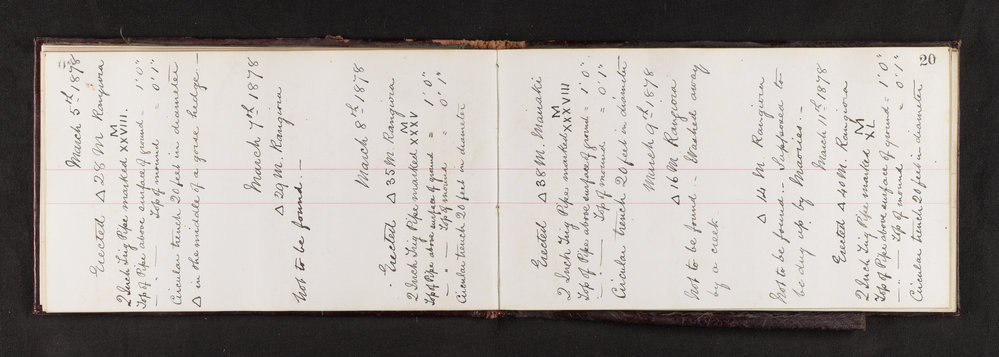 March 5th 1878
Erected △ 28 M Rangiora
2 Inch Trig Pipe marked M XXVIII.
Top of Pipe above surface of ground = 1' 0"
— " — Top of mound = 0' 1"
Circular trench 20 feet in diameter
△ in the middle of a gorse hedge —
March 7th 1878
△ 29 M. Rangiora
Not to be found. —
March 8th 1878
Erected △ 35 M. Rangiora
2 Inch Trig Pipe marked M XXXV
Top of Pipe above surface of ground = 1' 0"
— " — Top of mound = 0' 1"
Circular trench 20 feet in diameter
20
Erected △ 38 M. Manaki
2 Inch Trig Pipe marked M XXXVIII
Top of Pipe above surface of ground = 1' 0"
— " — Top of mound = 0' 1"
Circular trench 20 feet in diameter
March 9th 1878
△ 16 M Rangiora
Not to be found — Washed away
by a creek.
△ 14 M. Rangiora
Not to be found — Supposed to
be dug up by Maories. —
March 11th 1878
Erected △ 40 M. Rangiora
2 Inch Trig Pipe marked M XL
Top of Pipe above surface of ground = 1' 0"
— " — Top of mound = 0' 1"
Circular trench 20 feet in diameter